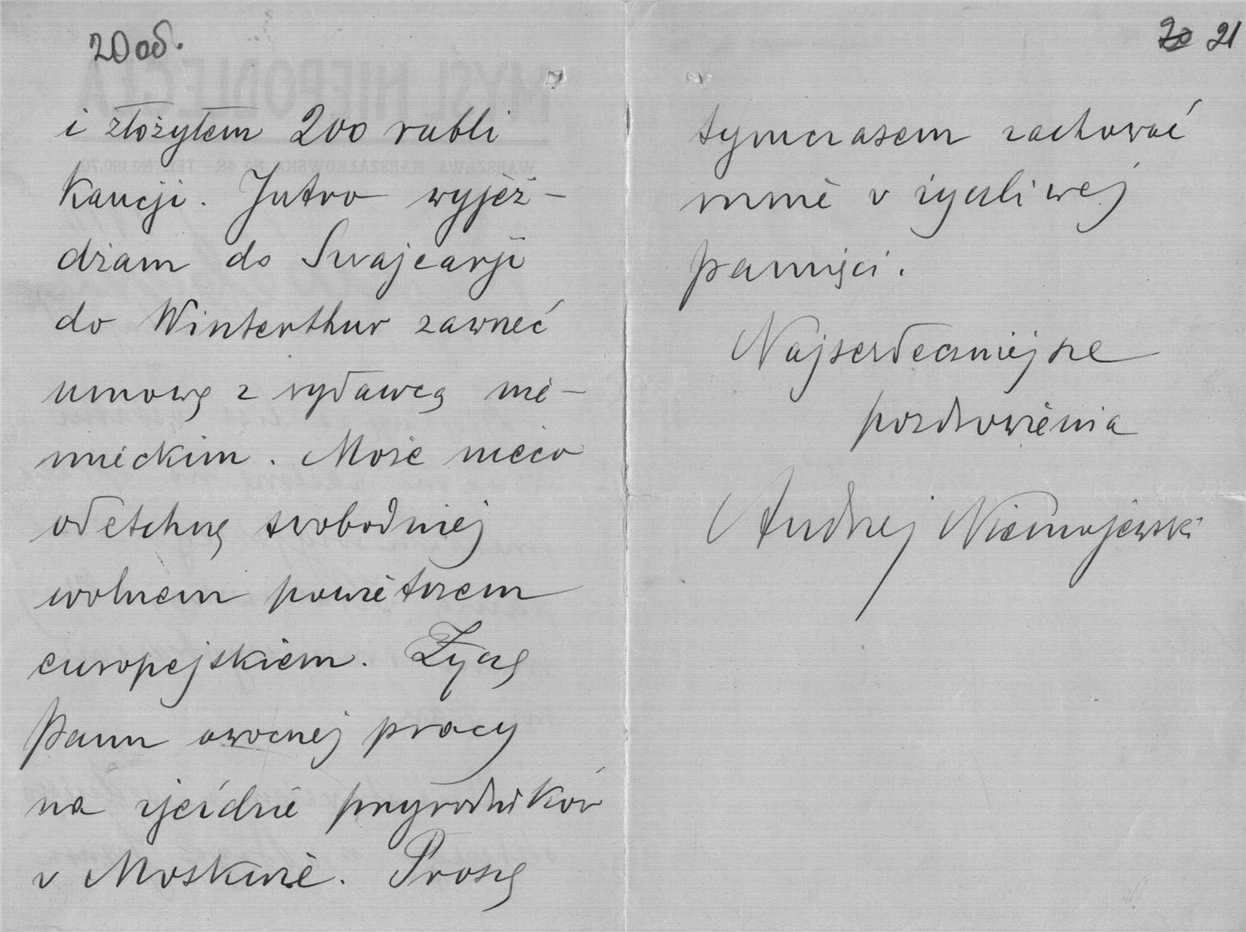 20 об.
i złożyłem 200 rubli
kaucji. Jutro wyjeż-
dżam do Szwajcarji
do Winterthur zawrzeć
umowę z wydawcą nie-
mieckim. Może nieco
odetchnę swobodniej
wolnem powietrzem
europejskiem. Życzę
Panu owocnej pracy
na zjeździe przyrodników
w Moskwie. Proszę
20 21
tymczasem zachować
mnie w życzliwej
pamięci.
Najserdeczniejsze
pozdrowienia
Andrzej Niemojewski
MYŚL NIEPODLEGŁA
WARSZAWA MARSZAŁKOWSKA No 48. - TEL. No 190,70